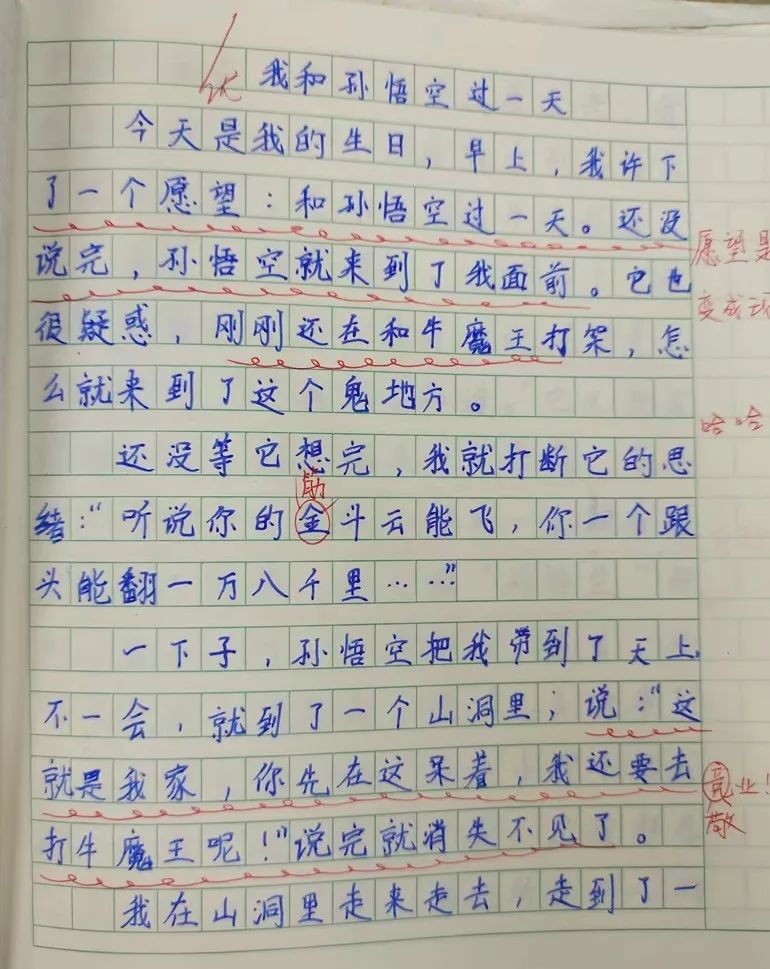 优
我和孙悟空过一天
今天是我的生日，早上，我许下
了一个愿望：和孙悟空过一天。还没
说完，孙悟空就来到了我面前。它也
愿望是
很疑惑，刚刚还在和牛魔王打架，怎
变成现
么就来到了这个鬼地方。
哈哈
还没等它想完，我就打断它的思
筋
绪：“听说你的金斗云能飞，你一个跟
头能翻一万八千里……”
一下子，孙悟空把我带到了天上，
不一会，就到了一个山洞里；说：“这
就是我家，你先在这呆着，我还要去
竟业！
敬
打牛魔王呢！”说完就消失不见了。
我在山洞里走来走去，走到了一